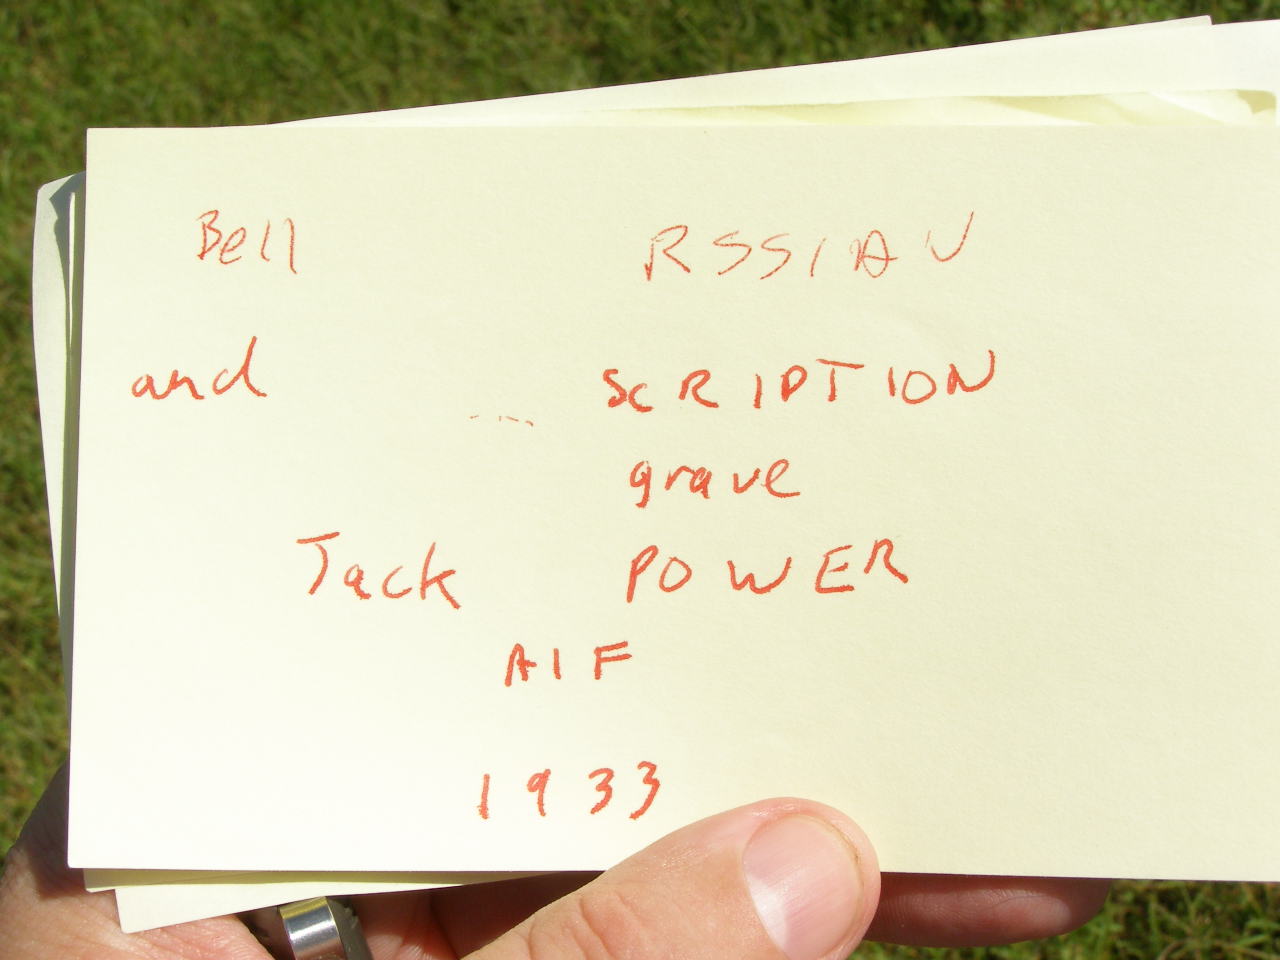 Bell RSSIAN
and ... SCRIPTION
grave
Jack POWER
AIF
1933